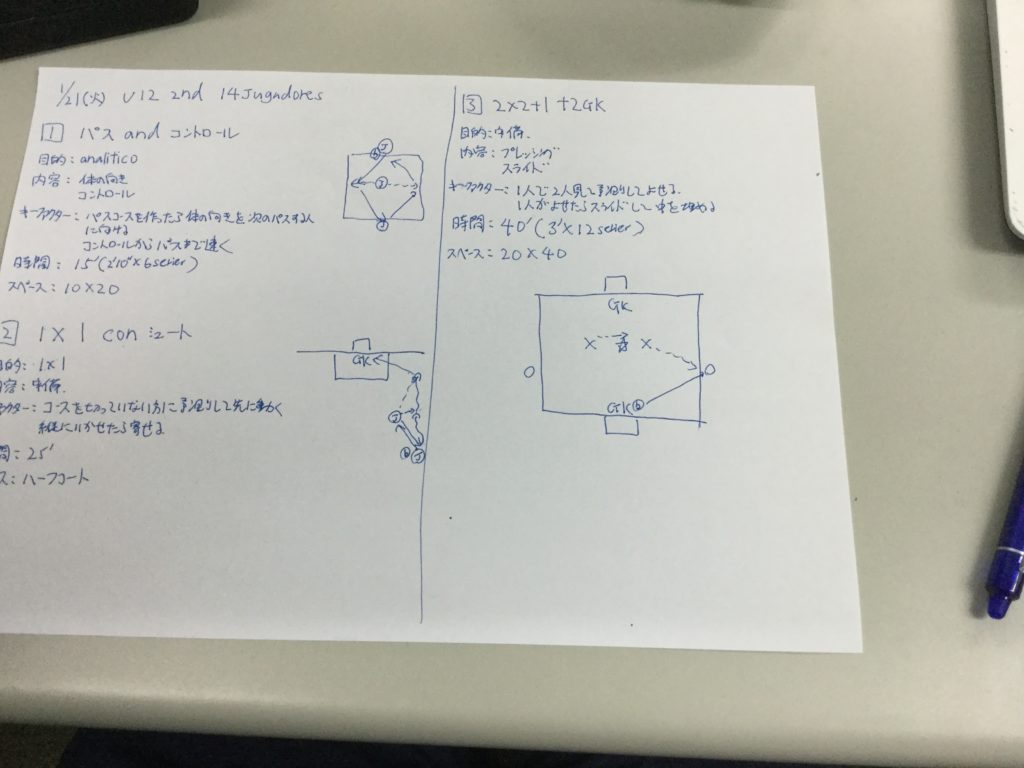 1/21(火) U12 2nd 14 Jugadores
1 パス and コントロール
目的: analitico
内容: 体の向き
コントロール
キーファクター: パスコースを作ったら体の向きを次のパスする人
に向ける
コントロールからパスまで速く
時間: 15' (2'10" × 6 serier)
スペース: 10×20
J
J
J
2 1×1 con シュート
目的: 1×1
内容: 守備
クター: コースを切っていない方に予測して先に動く
縦にいかせたら寄せる
間: 25'
ス: ハーフコート
GK
J
J
3 2×2+1 +2GK
目的: 守備.
内容: プレッシング
スライド
キーファクター: 1人で2人見て予測してよせる.
1人がよせたらスライドして中を埋める
時間: 40' (3'×12 serier)
スペース: 20×40
GK
× ×
O O
GK